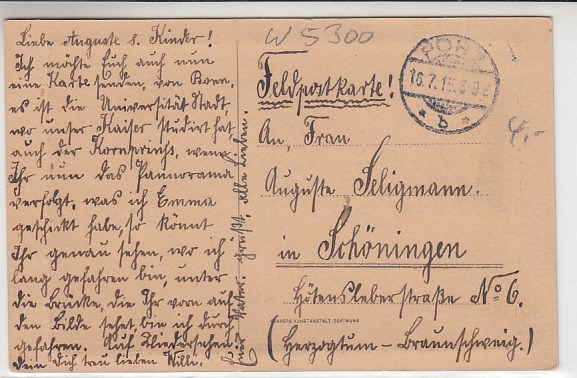 Liebe Auguste & Kinder!
Ich möchte Euch auch nun
eine Karte senden, von Bonn,
es ist die Universität Stadt,
wo unser Kaiser studirt hat
auch der Kornprinz, wenn
Ihr nun das Pannorama
verfolgt, was ich Emma
geschickt habe, so könnt
Ihr genau sehen, wo ich
lang gefahren bin, unter
die Brücke, die Ihr vorn auf
den Bilde sehet, bin ich durch
gefahren. Auf Wiedersehen.
Dein Dich treu lieben Willi.
Euer Vater. grüßt, alle Lieben.
W 5300
PORZ
16.7.15.
* b *
4,-
Feldpostkarte!
An, Frau
Auguste Seligmann.
in Schöningen
Hötensleberstraße No 6.
KUNSTANSTALT DORTMUND
(Herzogtum-Braunschweig.)